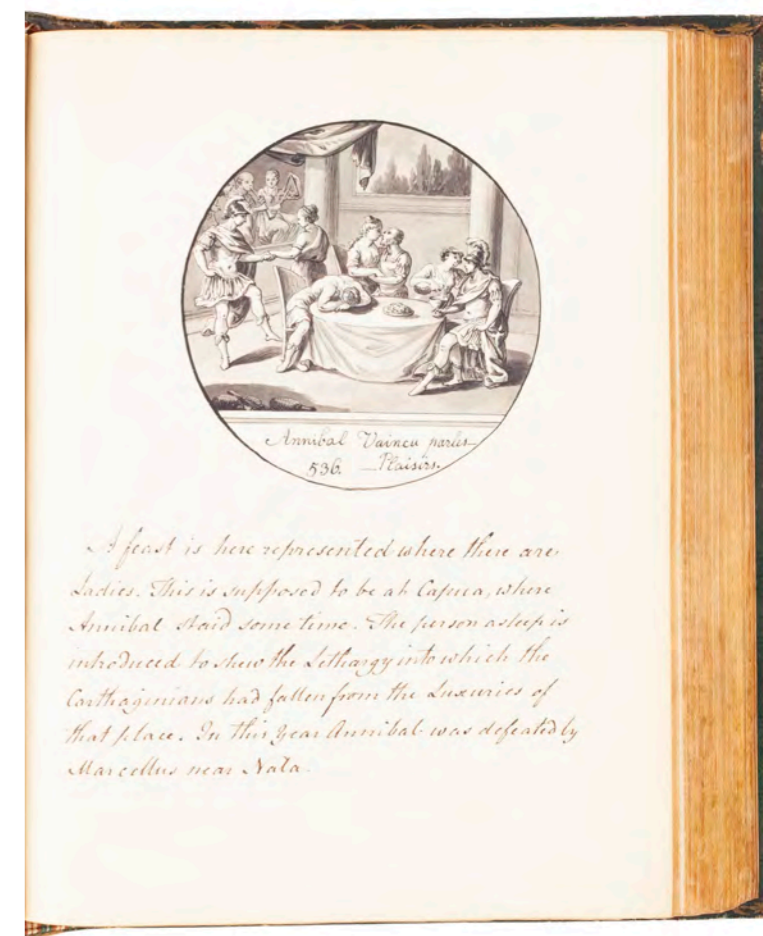 Annibal Vaincu par les
536. Plaisirs.
A feast is here represented where there are
Ladies. This is supposed to be at Capua, where
Annibal staid some time. The person asleep is
introduced to shew the Lethargy into which the
Carthaginians had fallen from the Luxuries of
that place. In this Year Annibal was defeated by
Marcellus near Nola